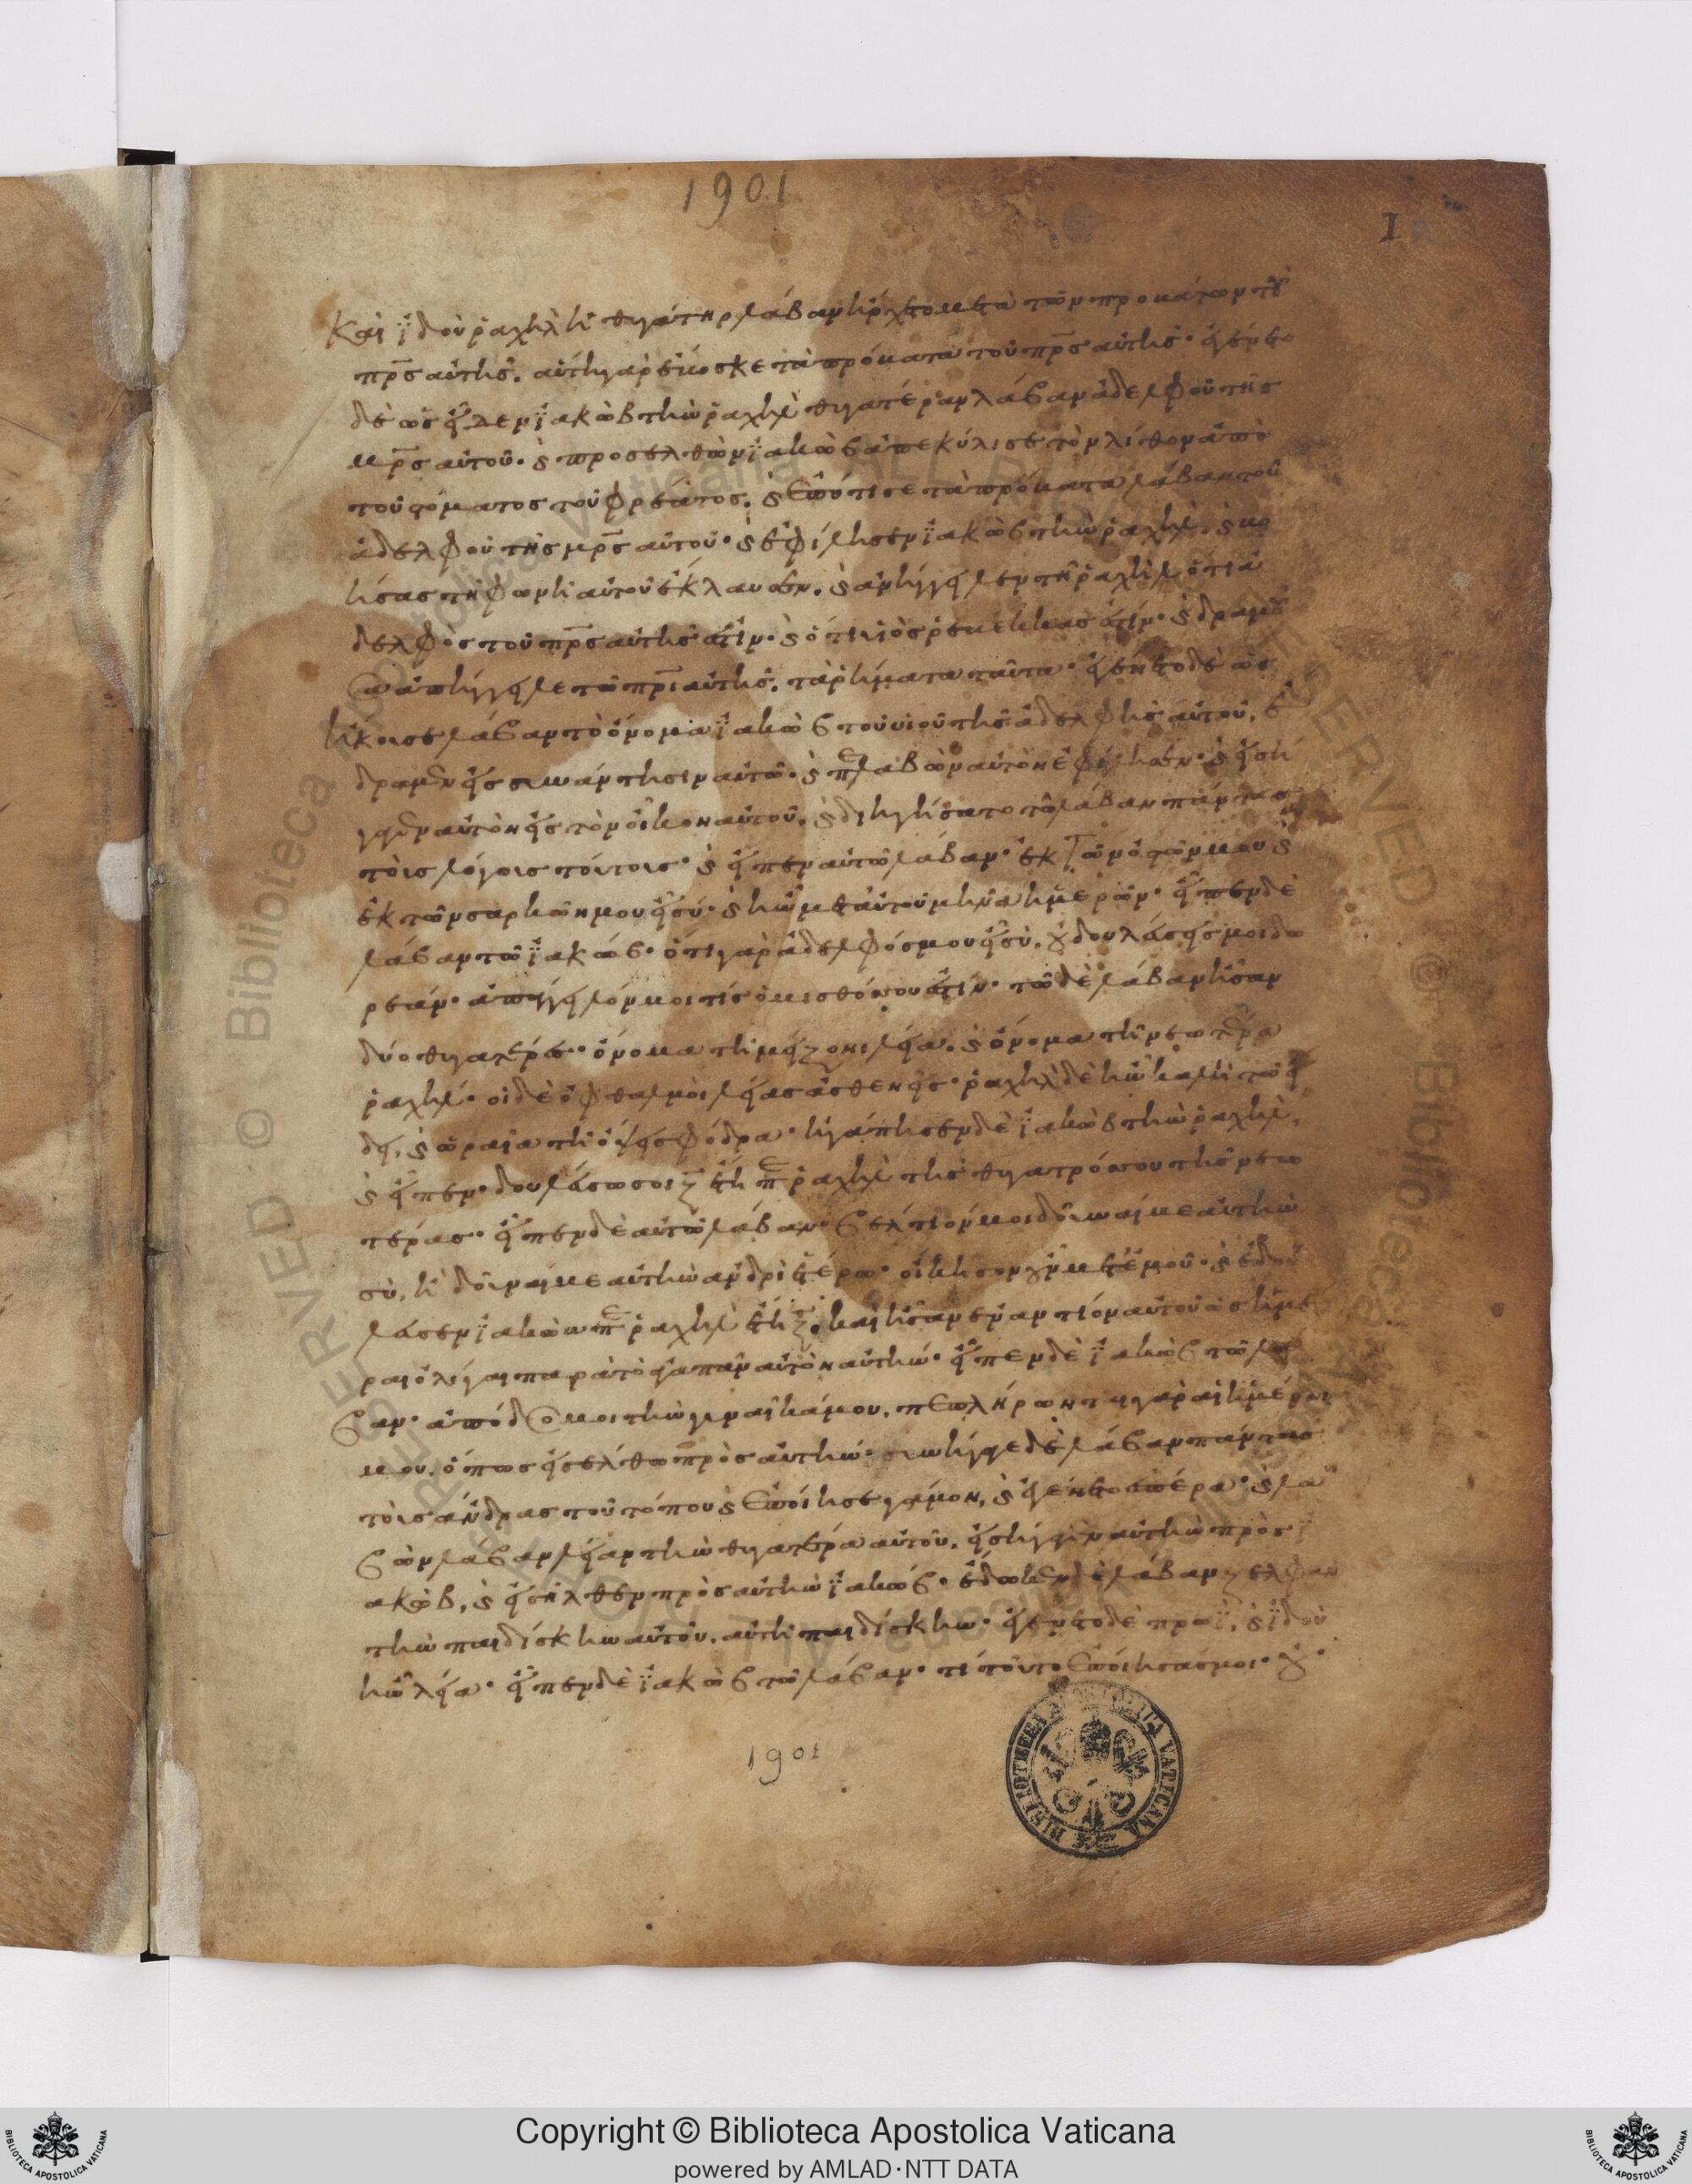 1901
1
Καὶ ἰδοὺ ῥαχὴλ ἡ θυγάτηρ λάβαν ἤρχετο μετὰ τῶν προβάτων τοῦ
πρς αὐτῆς. αὐτὴ γὰρ ἔβοσκε τὰ πρόβατα τοῦ πρς αὐτῆς· ἐγένετο
δὲ ὡς εἶδεν ϊακὼβ τὴν ῥαχὴλ θυγατέραν λάβαν ἀδελφοῦ τῆς
μρς αὐτοῦ. καὶ προσελθὼν ϊακὼβ ἀπεκύλισε τὸν λίθον ἀπὸ
τοῦ στόματος τοῦ φρέατος. καὶ ἐπότισε τὰ πρόβατα λάβαν τοῦ
ἀδελφοῦ τῆς μρς αὐτοῦ· καὶ ἐφίλησεν ϊακὼβ τὴν ῥαχὴλ. καὶ βο
ήσας τῇ φωνῇ αὐτοῦ ἔκλαυσεν. καὶ ἀνήγγειλεν τῇ ῥαχὴλ ὅτι ἀ
δελφὸς τοῦ πρς αὐτῆς ἐστίν· καὶ ὅτι υἱὸς ρεβέκκας ἐστίν· καὶ δραμοῦ
σα ἀπήγγειλε τῷ πρι αὐτῆς. τὰ ῥήματα ταῦτα· ἐγένετο δὲ ὡς
ἤκουσε λάβαν τὸ ὄνομα ϊακὼβ τοῦ υἱοῦ τῆς ἀδελφῆς αὐτοῦ,
δραμεν εἰς συνάντησιν αὐτῶ. καὶ περιλαβὼν αὐτὸν ἐφίλησεν· καὶ εἰσή
γαγεν αὐτὸν εἰς τὸν οἶκον αὐτοῦ. καὶ διηγήσατο τῷ λάβαν πάντας
τοὺς λόγους τούτους· καὶ εἶπεν αὐτῶ λάβαν· ἐκ τῶν ὀστῶν μου καὶ
ἐκ τῶν σαρκῶν μου εἶ σύ· καὶ ἦν μετ' αὐτοῦ μῆνα ἡμερῶν· εἶπεν δὲ
λάβαν τῶ ϊακώβ· ὅτι γὰρ ἀδελφός μου εἶ σὺ. οὐ δουλεύσεις μοι δω
ρεάν· ἀπάγγειλόν μοι τίς ὁ μισθός σου ἐστίν· τῶ δὲ λάβαν ἦσαν
δύο θυγατέρες· ὄνομα τῇ μείζονι λεία. καὶ ὄνομα τῇ νεωτέρα
ῥαχήλ· οἱ δὲ ὀφθαλμοὶ λείας ἀσθενεῖς· ῥαχὴλ δὲ ἦν καλὴ τῶ εἴ
δει, καὶ ὡραία τῇ ὄψει σφόδρα· ἠγάπησεν δὲ ϊακὼβ τὴν ῥαχὴλ,
καὶ εἶπεν· δουλεύσω σοι ζ ἔτη περὶ ῥαχὴλ τῆς θυγατρός σου τῆς νεω
τέρας· εἶπεν δὲ αὐτῶ λάβαν· βέλτιον μοι δοῦναί με αὐτὴν
σὺ, ἢ δοῦναί με αὐτὴν ἀνδρὶ ἑτέρω· οἴκησον οὖν μετ' ἐμοῦ· καὶ ἐδού
λευσεν ϊακὼβ περὶ ῥαχὴλ ἔτη ζ· καὶ ἦσαν ἐναντίον αὐτοῦ ὡς ἡμέ
ραι ὀλίγαι παρὰ τὸ ἀγαπᾶν αὐτὸν αὐτήν· εἶπεν δὲ ϊακὼβ τῶ λά
βαν· ἀπόδος μοι τὴν γυναῖκά μου. πεπλήρωνται γὰρ αἱ ἡμέραι
μου, ὅπως εἰσέλθω πρὸς αὐτήν· συνήγαγε δὲ λάβαν πάντας
τοὺς ἄνδρας τοῦ τόπου καὶ ἐποίησε γάμον, καὶ ἐγένετο ἑσπέρα· καὶ λα
βὼν λάβαν λείαν τὴν θυγατέρα αὐτοῦ. εἰσήγαγεν αὐτὴν πρὸς ϊ
ακὼβ, καὶ εἰσῆλθεν πρὸς αὐτὴν ϊακώβ· ἔδωκεν δὲ λάβαν ζελφὰν
τὴν παιδίσκην αὐτοῦ. αὐτῇ παιδίσκην· ἐγένετο δὲ πρωῒ, καὶ ϊδοὺ
ἦν λεία· εἶπεν δὲ ϊακὼβ τῶ λάβαν· τί τοῦτο ἐποίησάς μοι· οὐ
1901
BIBLIOTHECA APOSTOLICA VATICANA
Copyright © Biblioteca Apostolica Vaticana
powered by AMLAD·NTT DATA